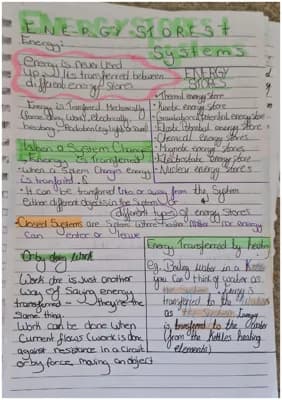 ENERGY STORES +
Systems
Energy:
energy is never used
up. Its transferred between
different energy stores
ENERGY
STORES
• Thermal energy store
• Kinetic energy store
• Gravitational potential energy store
• Elastic potential energy store
• Chemical energy store
• Magnetic energy stores
• Electrostatic energy store
• Nuclear energy store
Energy is Transferred Mechanically
(force doing work), electrically,
heating, Radiation (eg light or sound)
When a System Changes
Energy is Transferred
• When a System Changes energy
is transferred
• It can be transferred into or away from the System
either different objects in the System or
different types of energy Stores
Closed Systems are System where neither Matter nor energy
Can enter or leave
Or by doing Work
Work done is just another
way of Saying energy
transferred - they're the
Same thing.
Work can be done when
Current flows (work is done
against resistance in a Circuit
or by force moving an object
Energy Transferred by heating
eg. Boiling water in a Kettle
you can think of water as
the System. Energy is
transferred to the
as Energy
is transferred to the water
(from the kettles heating
elements)